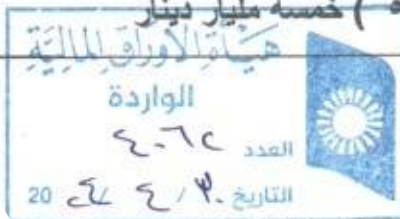 ) خمسة مليار دينار
هيأة الأوراق المالية
الواردة
العدد ٤٠٦٢
التاريخ ٣٠ / ٤ / ٢٤ 20